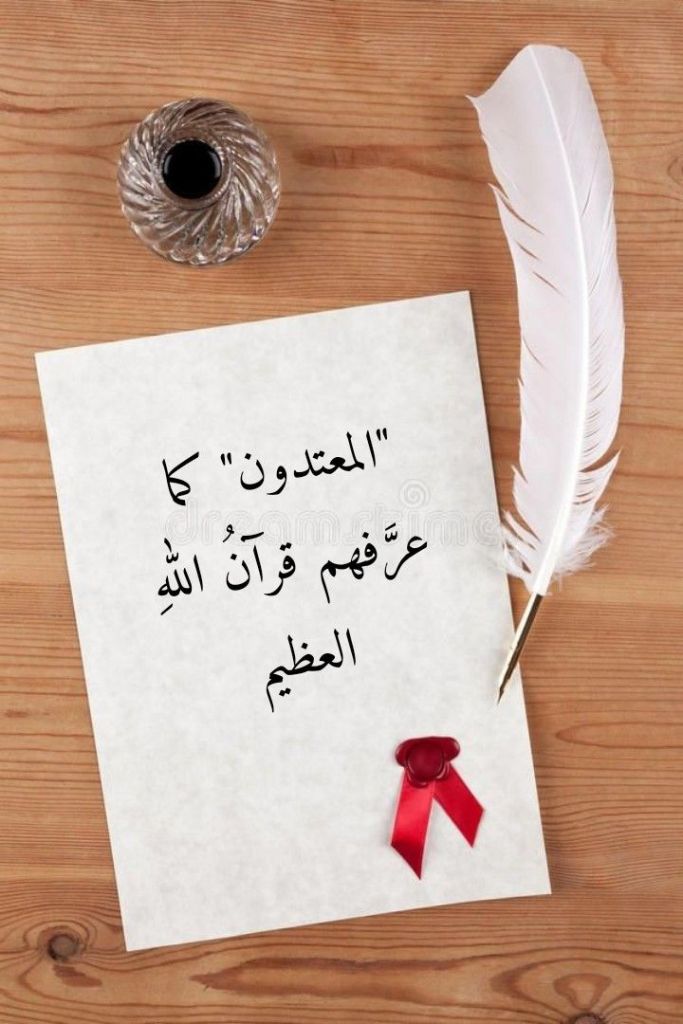 "المعتدون" كما
عرَّفهم قرآنُ اللهِ
العظيم
dreamstime